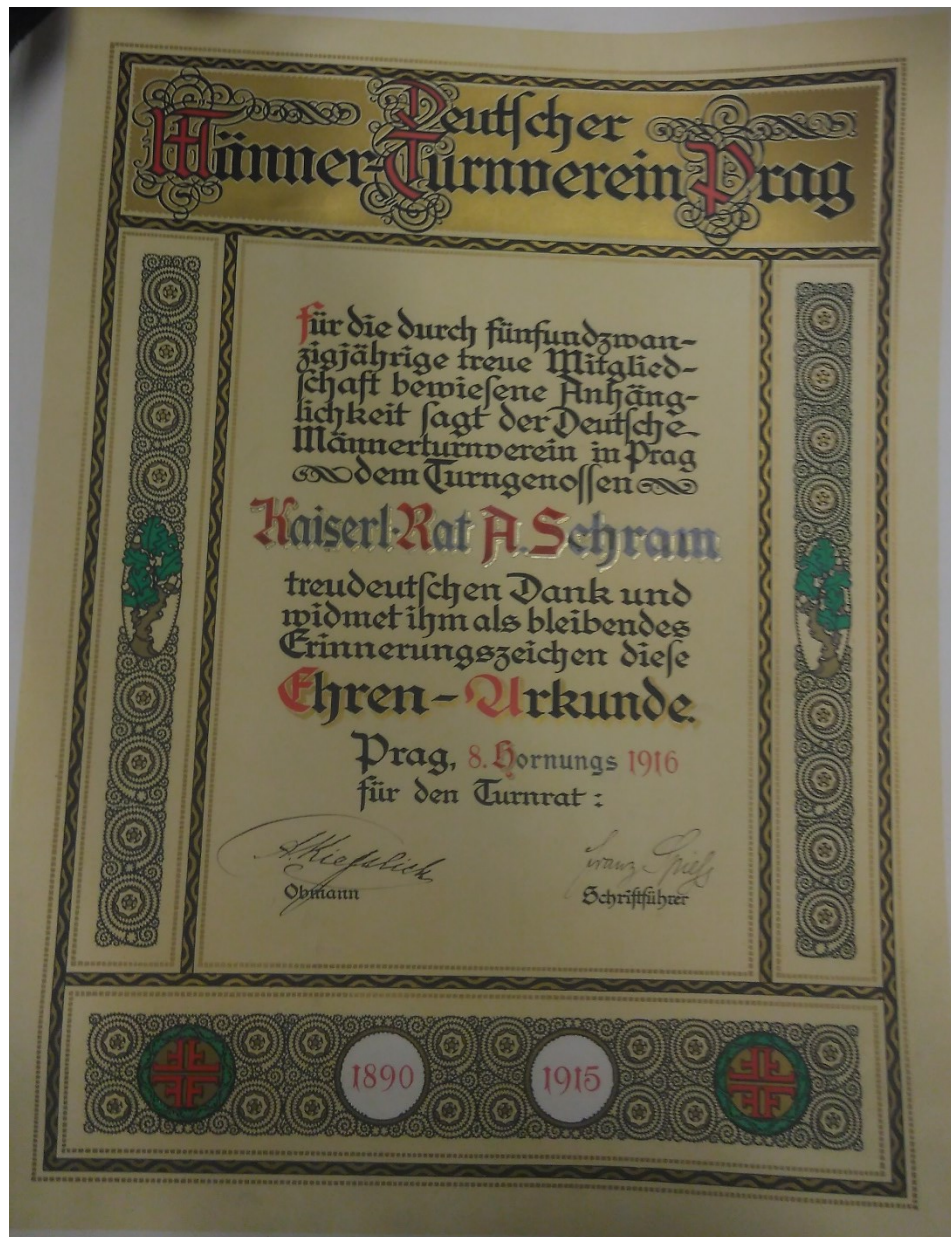 Deutscher
Männer-Turnverein Prag
für die durch fünfundzwan-
zigjährige treue Mitglied-
schaft bewiesene Anhäng-
lichkeit sagt der Deutsche
Männerturnverein in Prag
dem Turngenossen
Kaiserl. Rat A. Schram
treudeutschen Dank und
widmet ihm als bleibendes
Erinnerungszeichen diese
Ehren-Urkunde.
Prag, 8. Hornungs 1916
für den Turnrat:
Franz
Obmann Schriftführer
1890 1915